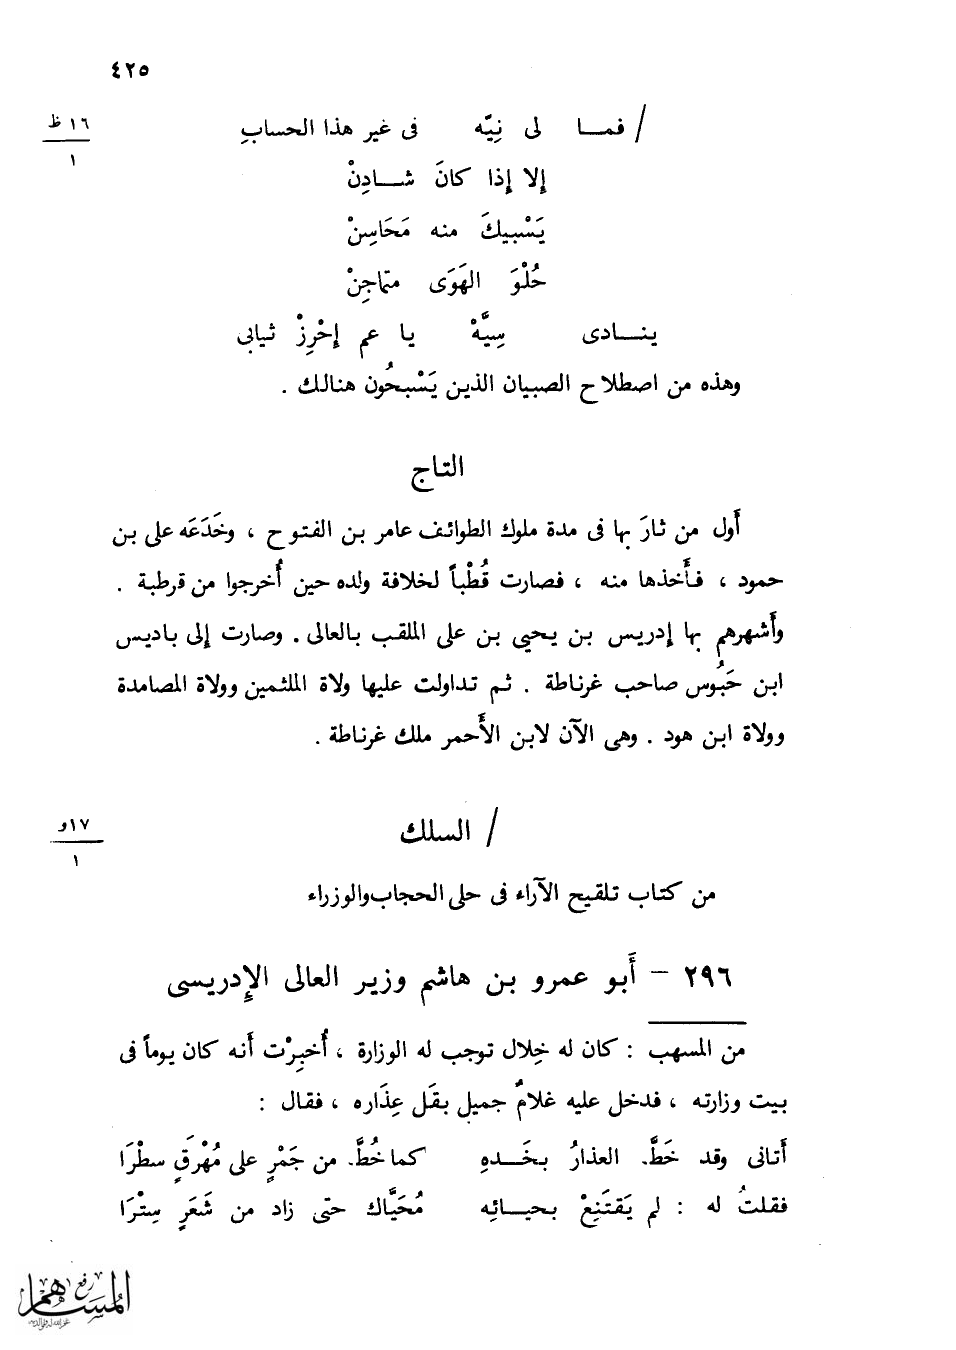 ٤٢٥
/ فمــا لى نِيّه فى غير هذا الحسابِ
١٦ ظ
١
إلا إذا كانَ شــادِنْ
يَسْبيكَ منه مَحَاسِنْ
حُلْوَ الهَوَى متماجِنْ
ينــادى سِيَّهْ يا عم إحْرِزْ ثيابى
وهذه من اصطلاح الصبيان الذين يَسْبحُون هنالك .
التاج
أول من ثارَ بها فى مدة ملوك الطوائف عامر بن الفتوح ، وخَدَعَه على بن
حمود ، فأخذها منه ، فصارت قُطْباً لخلافة ولده حين أُخرجوا من قرطبة .
وأشهرهم بها إدريس بن يحيى بن على الملقب بالعالى . وصارت إلى باديس
ابن حَبُوس صاحب غرناطة . ثم تداولت عليها ولاة الملثمين وولاة المصامدة
وولاة ابن هود . وهى الآن لابن الأحمر ملك غرناطة .
/ السلك
١٧و
١
من كتاب تلقيح الآراء فى حلى الحجاب والوزراء
٢٩٦ – أبو عمرو بن هاشم وزير العالى الإدريسى
من المسهب : كان له خِلال توجب له الوزارة ، أُخبِرْت أنه كان يوماً فى
بيت وزارته ، فدخل عليه غلامٌ جميل بقَل عِذَاره ، فقال :
أتانى وقد خَطَّ العذارُ بخَــدهِ كما خُطَّ من حَمْرٍ على مُهْرَقٍ سطْرَا
فقلتُ له : لم يَقتَنِعْ بحيــائِه مُحَيَّاك حتى زاد من شَعَرٍ سِتْرَا
رفع
المساهم